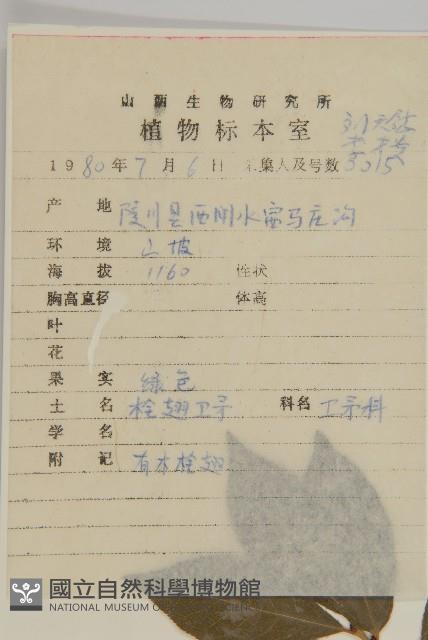 山西生物研究所
植物标本室
1980年7月6日 采集人及号数 3015
产地 陵川县西闸水窑马庄沟
环境 山坡
海拔 1160 性状
胸高直径 体高
叶
花
果实 绿色
土名 栓翅卫矛 科名 卫矛科
学名
附记 有木栓翅
國立自然科學博物館
NATIONAL MUSEUM OF NATURAL SCIENCE